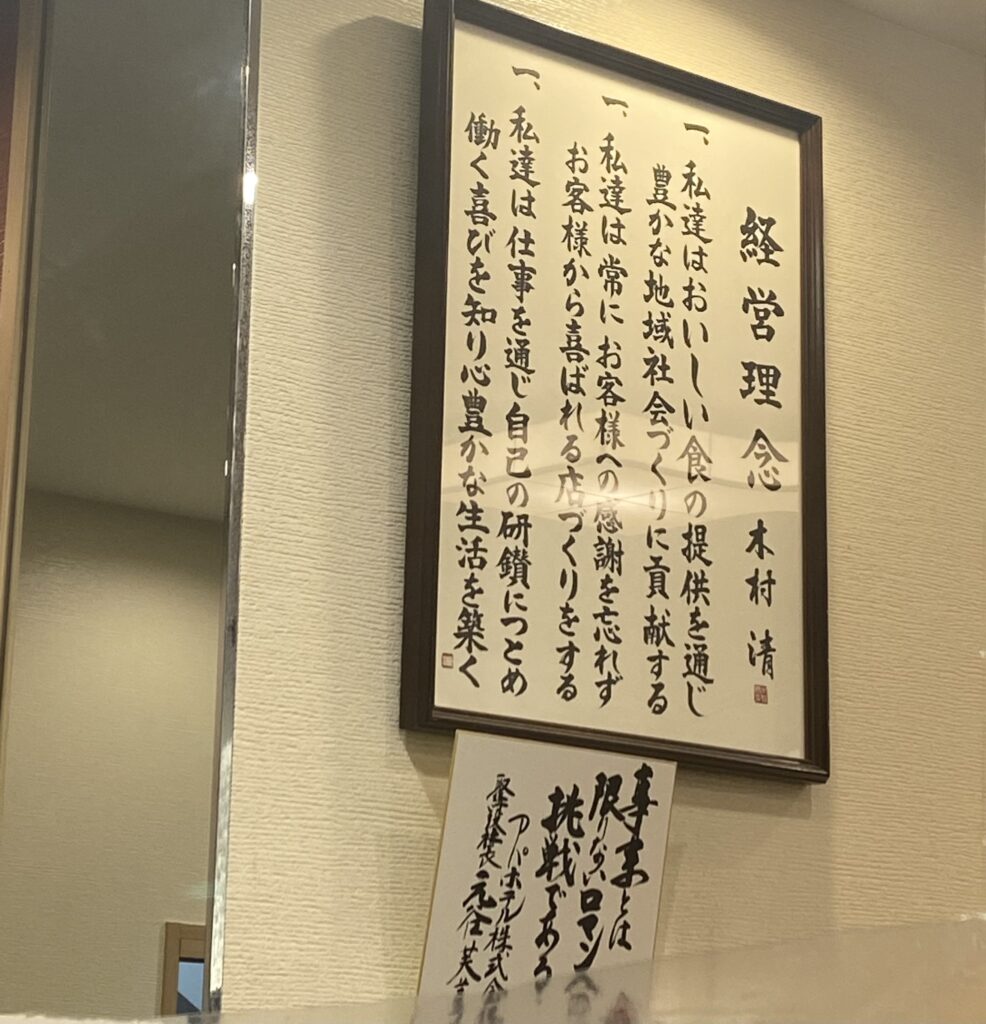 経営理念 木村 清
一、私達はおいしい食の提供を通じ
豊かな地域社会づくりに貢献する
一、私達は常にお客様への感謝を忘れず
お客様から喜ばれる店づくりをする
一、私達は仕事を通じ自己の研鑽につとめ
働く喜びを知り心豊かな生活を築く
事業とは
限りないロマン
挑戦である
アパホテル株式会
取締役社長 元谷芙美